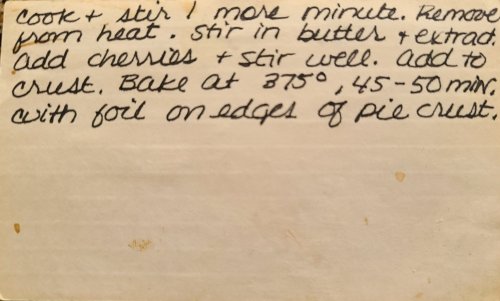 cook + stir 1 more minute. Remove
from heat. Stir in butter + extract.
add cherries + stir well. add to
crust. Bake at 375°, 45-50 min.
with foil on edges of pie crust.